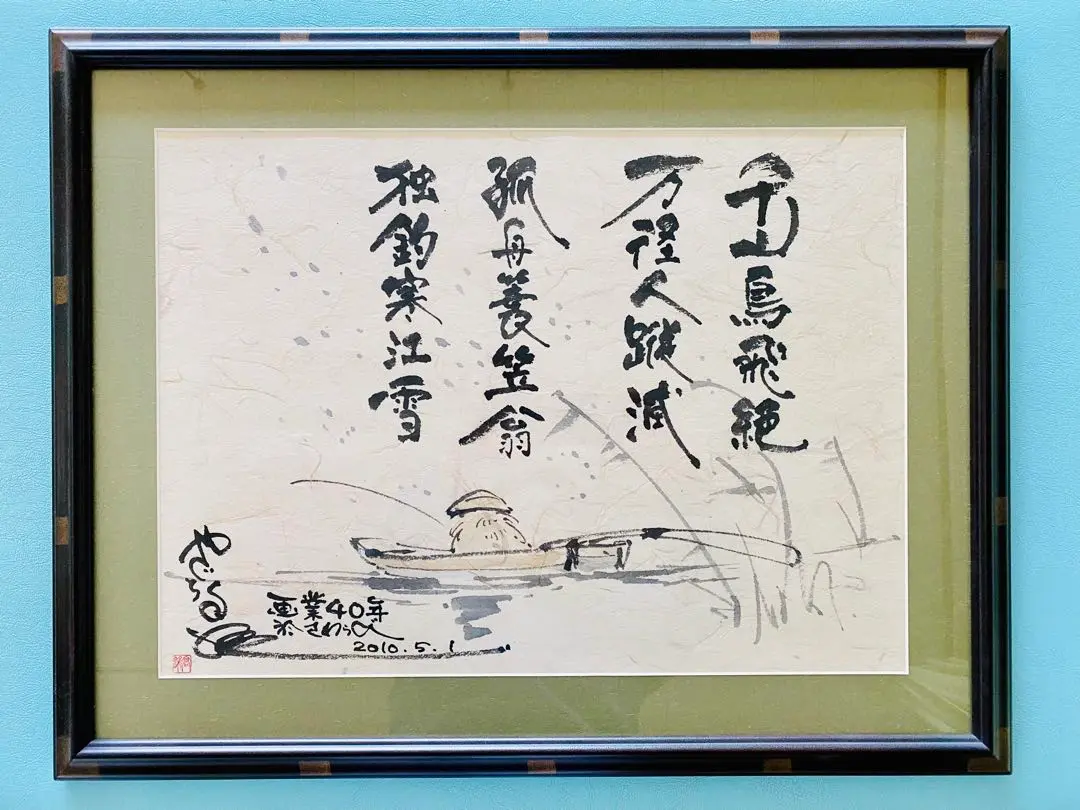 千山鳥飛絶
万径人蹤滅
孤舟蓑笠翁
独釣寒江雪
画業40年
於さわらび
2010.5.1